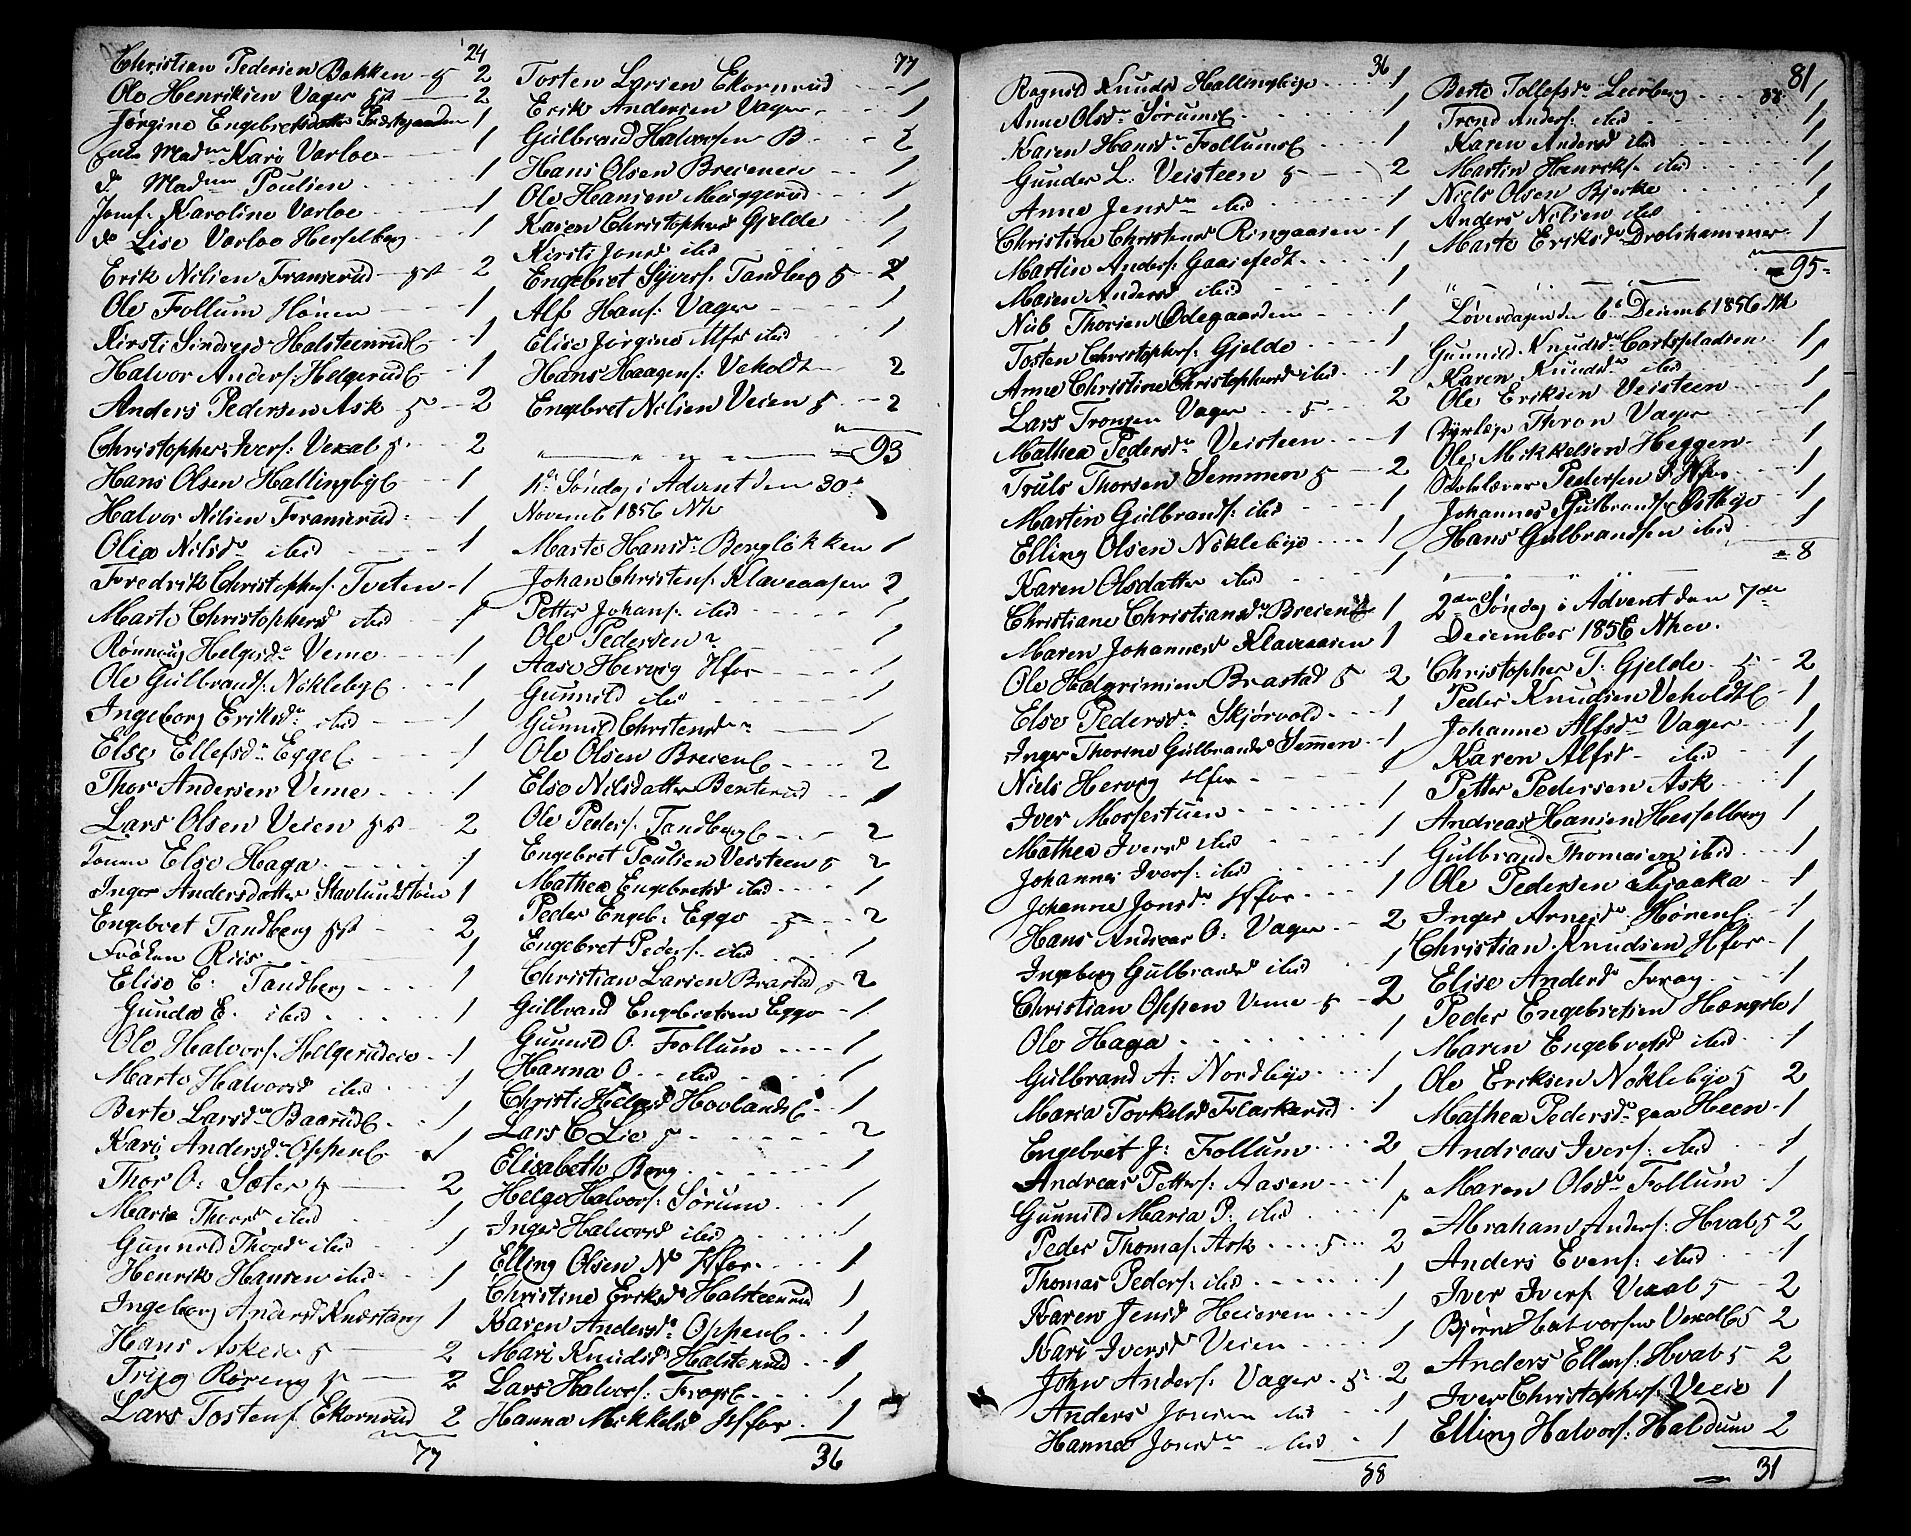 24
Christian Pedersen Bakken 5 2
Ole Henriksen Vager 5 2
Jørgine Engebretsdatter Præstegaarden 1
Madme Kari Varloe 1
do Madme Poulsen 1
Jomf. Karoline Varloe 1
do Lise Varloe Hesselberg 1
Erik Nilsen Framserud 2
Ole Follum Hønen 1
Kirsti Sindresd Halsteenrud E 1
Halvor Anders: Helgerud E 1
Anders Pedersen Ask 5 2
Christopher Ivers: Vexal 5 2
Hans Olsen Hallingby E 1
Halvor Nilsen Framserud 1
Olia Nilsdr ibid 1
Fredrik Christophers: Tveten 1
Marte Christophersd ibid 1
Rønnaug Helgesdr Veme 1
Ole Gulbrands: Nökleby E 1
Ingeborg Eriksdr ibid 1
Else Ellefsdr Egge E 1
Thor Andersen Veme 1
Lars Olsen Veien 2
Else Haga 1
Inger Andersdatter Stavlundstøen 1
Engebret Tandberg 2
Frøken Riis 1
Elise E: Tandberg 1
Gunda E. ibid 1
Ole Halvors: Helgerudeie 1
Marte Halvorsd ibid 1
Berte Larsdr Baarud E 1
Kari Andersdr Oppen E 1
Thor O: Sæter 5 2
Maria Thorsd ibid 1
Gunnild Thorsdr ibid 1
Henrik Hansen ibid 1
Ingeborg Andersd Knestang 1
Hans Askeie 5 2
Tryg Røreng 5 2
Lars Tostens Ekornrud 2
77
77
Tosten Larsen Ekornrud 1
Erik Andersen Vager 1
Gulbrand Halvorsen B 2
Hans Olsen Breienen 1
Ole Hansen Muggerud 1
Karen Christophersd Gjelde 1
Kirsti Jonsd ibid 1
Engebret Syvers: Tandberg 5 2
Alf Hans: Vager 1
Elise Jørgine Alfsd ibid 1
Hans Haagens: Veholdt 2
Engebret Nilsen Veien 5 2
93
1ste Søndag i Advent den 30te
Novemb 1856 Nh
Marte Hansdr Bergløkken 1
Johan Christens: Klaveaasen 2
Petter Johans: ibid 1
Ole Pedersen 1
Aase Hervig Hfos 1
Gunnild ibid 1
Gunnild Christensdr 1
Ole Olsen Breien E 2
Else Nilsdatter Benterud 1
Ole Peders: Tandberg E 2
Engebret Poulsen Veisteen 5 2
Mathea Engebretsd ibid 1
Peder Engeb: Egge 5 2
Engebret Peders: ibid 1
Christian Larsen Brastad 5 2
Gulbrand Engebretsen Egge 1
Gunnild O. Follum 1
Hanna O. ibid 1
Christi Helgesd Hovlands E 1
Lars E Lie 5 2
Elisabeth Berg 1
Helge Halvors: Sørum 1
Inger Halvorsd ibid 1
Elling Olsen N Hfos 1
Christine Eriksd Halsteenrud 1
Karen Andersdr Oppen E 1
Mari Knudsd Halstenrud 1
Lars Halvors: Frog E 1
Hanna Mikkelsd Hfos 1
36
36
Ragnild Knudsd Hallingbye 1
Anne Olsdr Sørums E 1
Karen Hansdr Follums E 1
Gunder L: Veisteen 5 2
Anne Jensdr ibid 1
Christine Christensd Ringaasen 1
Martin Anders: Gaasefedt 1
Maren Andersd ibid 1
Nub Thorsen Ødegaarden 1
Tosten Christophers: Gjelde 1
Anne Christine Christophersd ibid 1
Lars Tronsen Vager 5 2
Mathea Pedersdr Veisteen 1
Touls Thorsen Semmen 5 2
Martin Gulbrands: ibid 1
Elling Olsen Nöklebye 1
Karen Olsdatter ibid 1
Christiane Christiansdr Breien 1
Maren Johannesd Klaveaasen 1
Ole Halgrimsen Brastad 5 2
Else Pedersdr Skjørvold 1
Inger Thorine Gulbrandsd Semmen 1
Niels Hervig Hfos 1
Iver Mossestuen 1
Mathea Iversd ibid 1
Johannes Ivers: ibid 1
Johanne Jonsdr Hfos 1
Hans Andreas O: Vager 2
Ingeborg Gulbrandsd ibid 1
Christian Oppen Veme 5 2
Ole Haga 1
Gulbrand A: Nordbye 1
Maria Torkelsd Flaskerud 1
Engebret J: Follum 2
Andreas Petters: Aasen 1
Gunnild Maria P: ibid 1
Peder Thomas: Ask 5 2
Thomas Peders: ibid 1
Karen Jensd Heieren 1
Kari Iversdr Veien 1
John Anders: Vager 5 2
Anders Jonsen ibid 1
Hanna Jonsdr ibid 1
58
81
58
Berte Tollefsdr Leerberg 1
Trond Anders: ibid 1
Karen Andersd ibid 1
Martin Henriks: ibid 1
Niels Olsen Bjerke 1
Anders Nilsen ibid 1
Marte Eriksdr Drolshammer 1
95
Løverdagen den 6te Decemb 1856
Gunnild Knudsdr Carlspladsen 1
Karen Knudsdr ibid 1
Ole Eriksen Veisteen 1
Thron Vager 1
Ole Mikkelsen Heggen 1
Skolelærer Pedersen Hfos 1
Johannes Gulbrands Østbye 1
Hans Gulbrandsen ibid 1
8
2den Søndag i Advent den 7de
December 1856
Christopher T: Gjelde 5 2
Peder Knudsen Veholdt E 1
Johanne Alfsdr Vager 1
Karen Alfsd ibid 1
Petter Pedersen Ask 1
Andreas Hansen Hesselberg 1
Gulbrand Thomasen ibid 1
Ole Pedersen Pjaaka 1
Inger Arnesdr Hønen E 1
Christian Knudsen Hfos 1
Elise Andersdr Frog 1
Peder Engebretsen Hængsle 1
Maren Engebretsd ibid 1
Ole Eriksen Nöklebye 5 2
Mathea Pedersdr paa Heen 1
Andreas Ivers: ibid 1
Maren Olsdr Follum 1
Abraham Anders: Hval 5 2
Anders Evens: ibid 1
Iver Ivers Vexal 5 2
Bjørn Halvorsen Vexal E 5 2
Anders Ellens: Hval 5 2
Iver Christophers: Veeie 1
Elling Halvors: Haldum 2
31